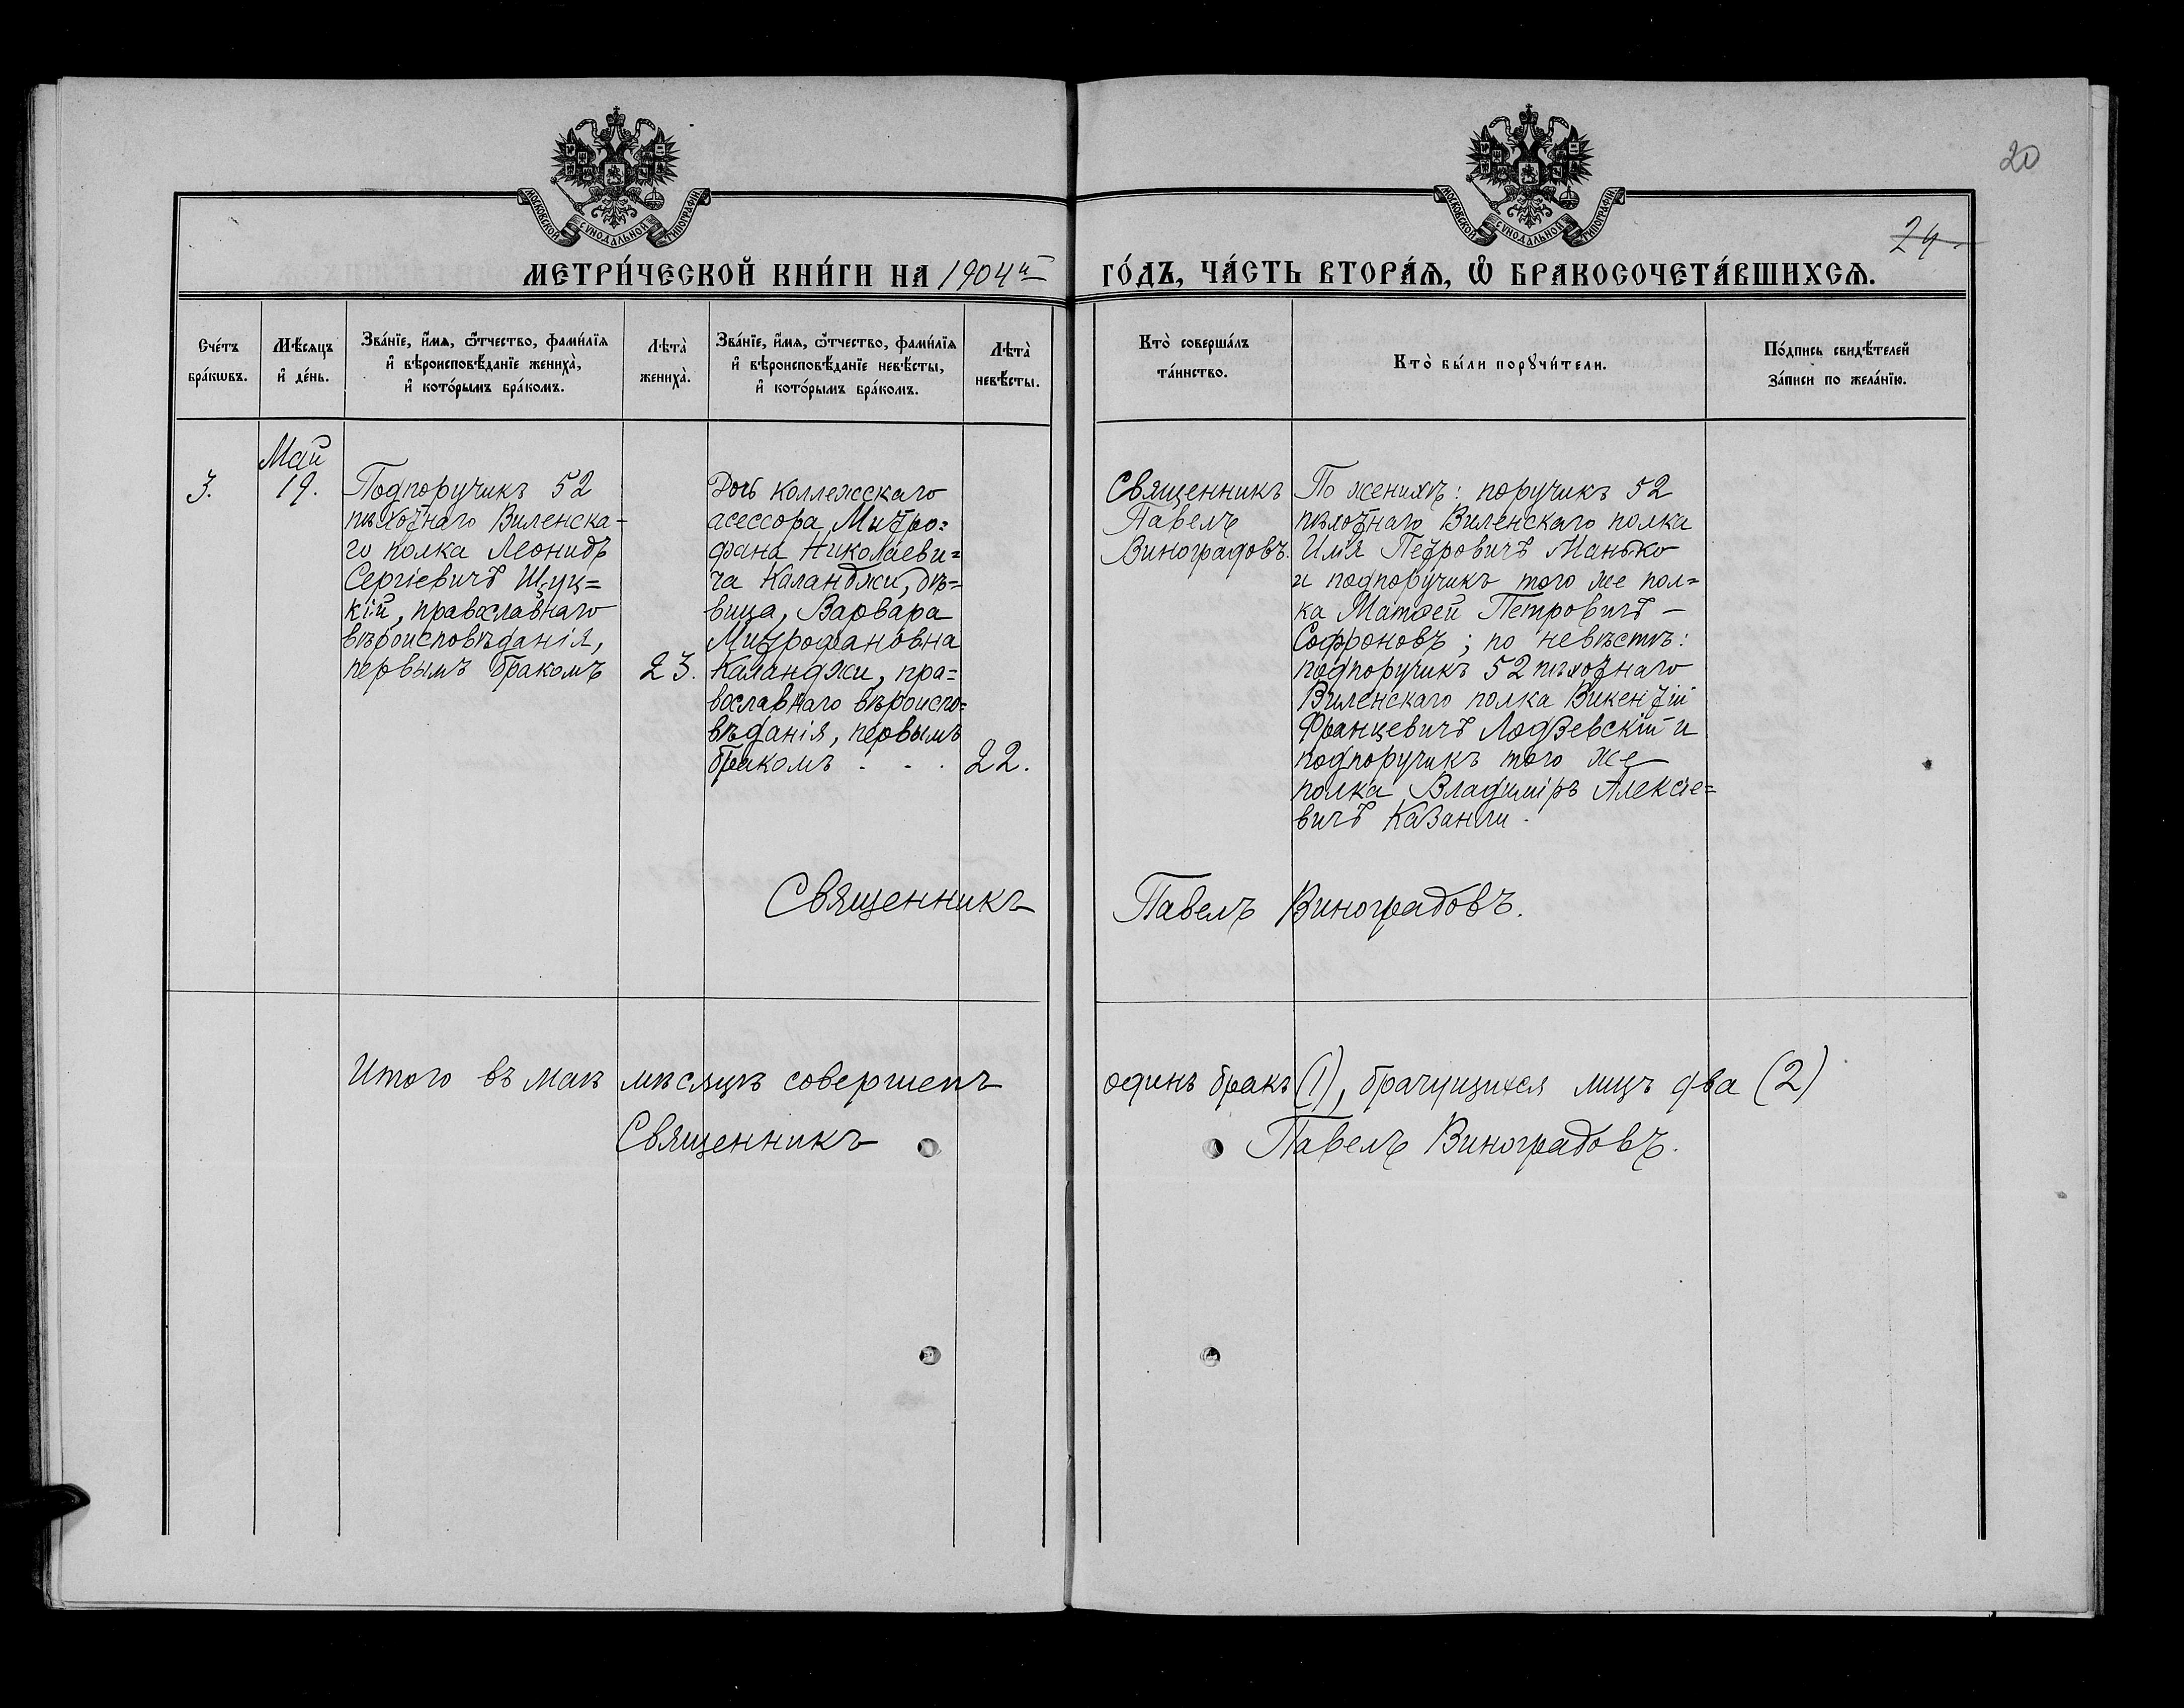 МОСКОВСКОЙ СѴНОДАЛЬНОЙ ТИПОГРАФІИ
МОСКОВСКОЙ СѴНОДАЛЬНОЙ ТИПОГРАФІИ
20
24.
МЕТРИ́ЧЕСКОЙ КНИ́ГИ НА 1904й
ГО́ДЪ, ЧА́СТЬ ВТОРА́Ѧ, Ѡ҆ БРАКОСОЧЕТА́ВШИХСѦ.
Сче́тъ
бра́кѡвъ.
Мѣ́сяцъ
и҆ де́нь.
Зва́нїе, и҆́мя, ѻ҆́тчество, фами́лїя
и҆ вѣроисповѣ́данїе жениха̀,
и҆ кото́рымъ бра́комъ.
Лѣта̀
жениха̀.
Зва́нїе, и҆́мя, ѻ҆́тчество, фами́лїя
и҆ вѣроисповѣ́данїе невѣ́сты,
и҆ кото́рымъ бра́комъ.
Лѣта̀
невѣ́сты.
Кто̀ соверша́лъ
та́инство.
Кто̀ бы́ли порꙋчи́тели.
По́дпись свидѣ́телей
за́писи по жела́нїю.
3.
Май
19.
Подпоручикъ 52
пѣхотнаго Виленска-
го полка Леонидъ
Сергіевичъ Щуц=
кій, православнаго
вѣроисповѣданія,
первымъ бракомъ
23.
Дочь коллежскаго
асессора Митро=
фана Николаеви=
ча Каланджи, дѣ=
вица, Варвара
Митрофановна
Каланджи, пра=
вославнаго вѣроиспо=
вѣданія, первымъ
бракомъ . - .
22.
Священникъ
Павелъ
Виноградовъ.
По женихѣ: поручикъ 52
пѣхотнаго Виленскаго полка
Илія Петровичъ Манько
и подпоручикъ того же пол=
ка Матѳей Петровичъ –
Софроновъ; по невѣстѣ:
подпоручикъ 52 пѣхотнаго
Виленскаго полка Викентій
Францевичъ Лодзевскій и
подпоручикъ того же
полка Владиміръ Алексѣе=
вичъ Казанли.
Священникъ Павелъ Виноградовъ.
Итого въ маѣ мѣсяцѣ совершенъ одинъ бракъ (1), брачущихся лицъ два (2)
Священникъ Павелъ Виноградовъ.